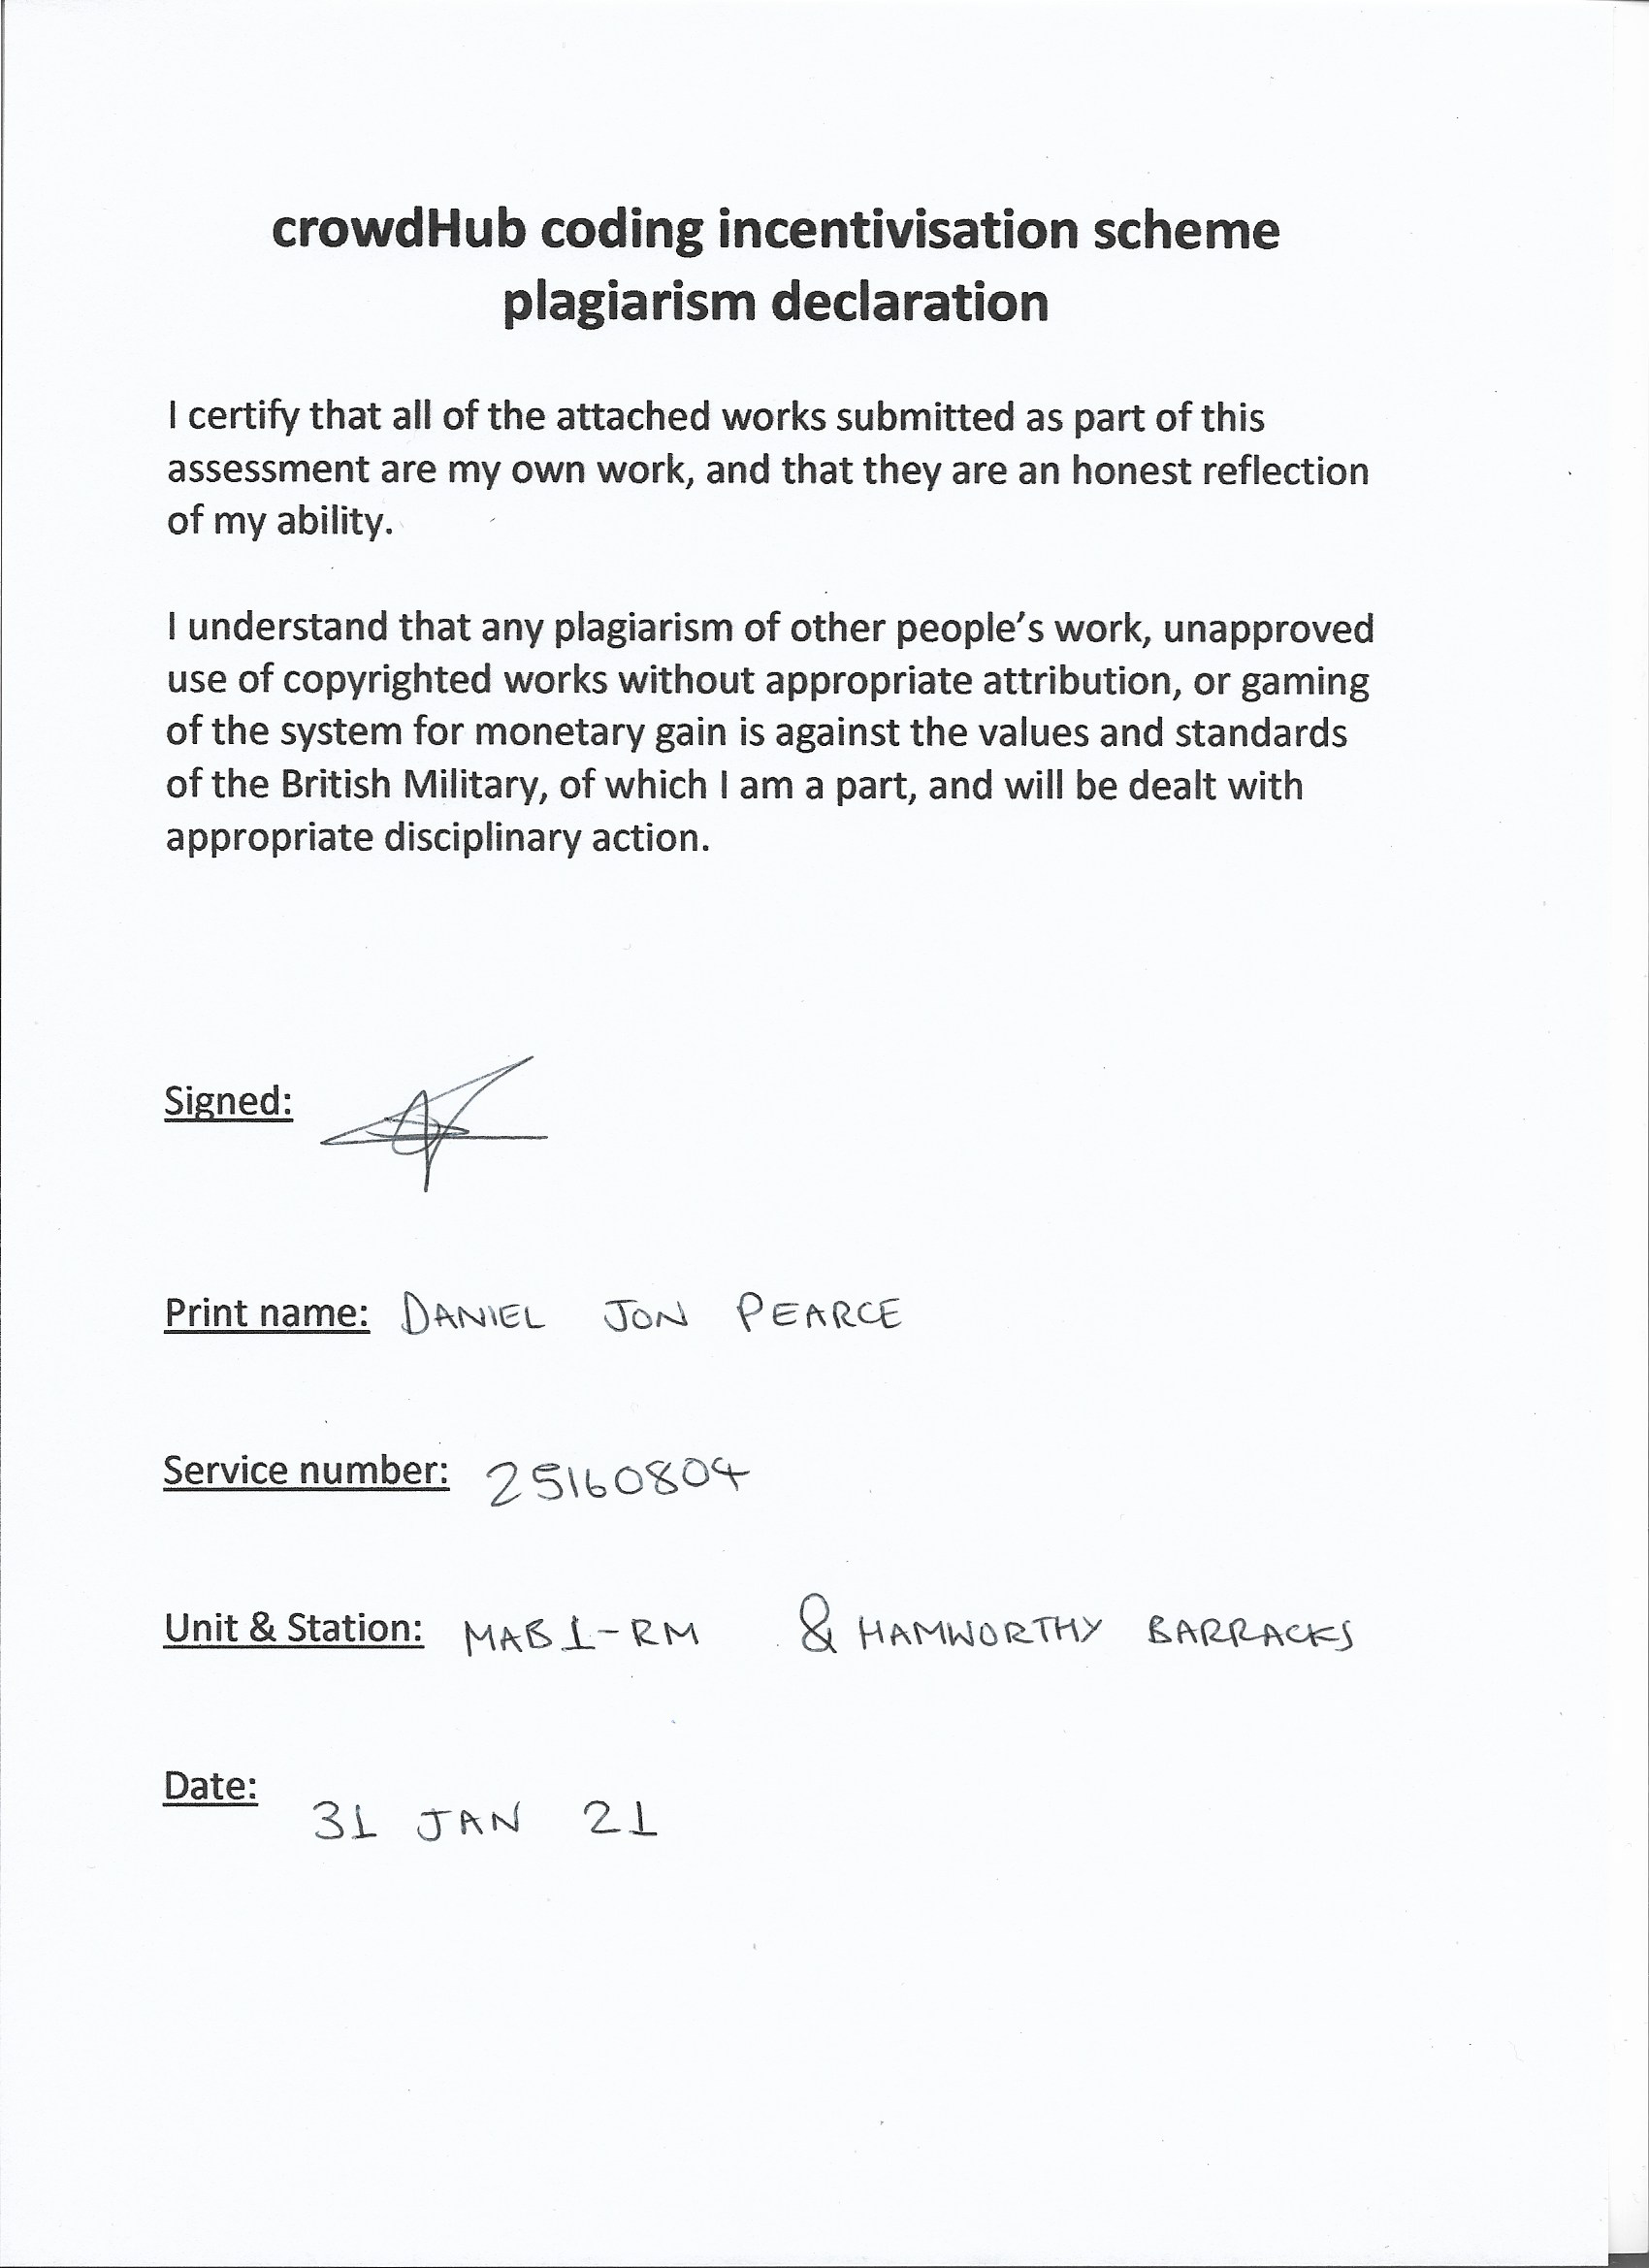 crowdHub coding incentivisation scheme
plagiarism declaration
I certify that all of the attached works submitted as part of this
assessment are my own work, and that they are an honest reflection
of my ability.
I understand that any plagiarism of other people's work, unapproved
use of copyrighted works without appropriate attribution, or gaming
of the system for monetary gain is against the values and standards
of the British Military, of which I am a part, and will be dealt with
appropriate disciplinary action.
Signed:
Print name: DANIEL JON PEARCE
Service number: 25160804
Unit & Station: MAB1-RM & HAMWORTHY BARRACKS
Date: 31 JAN 21